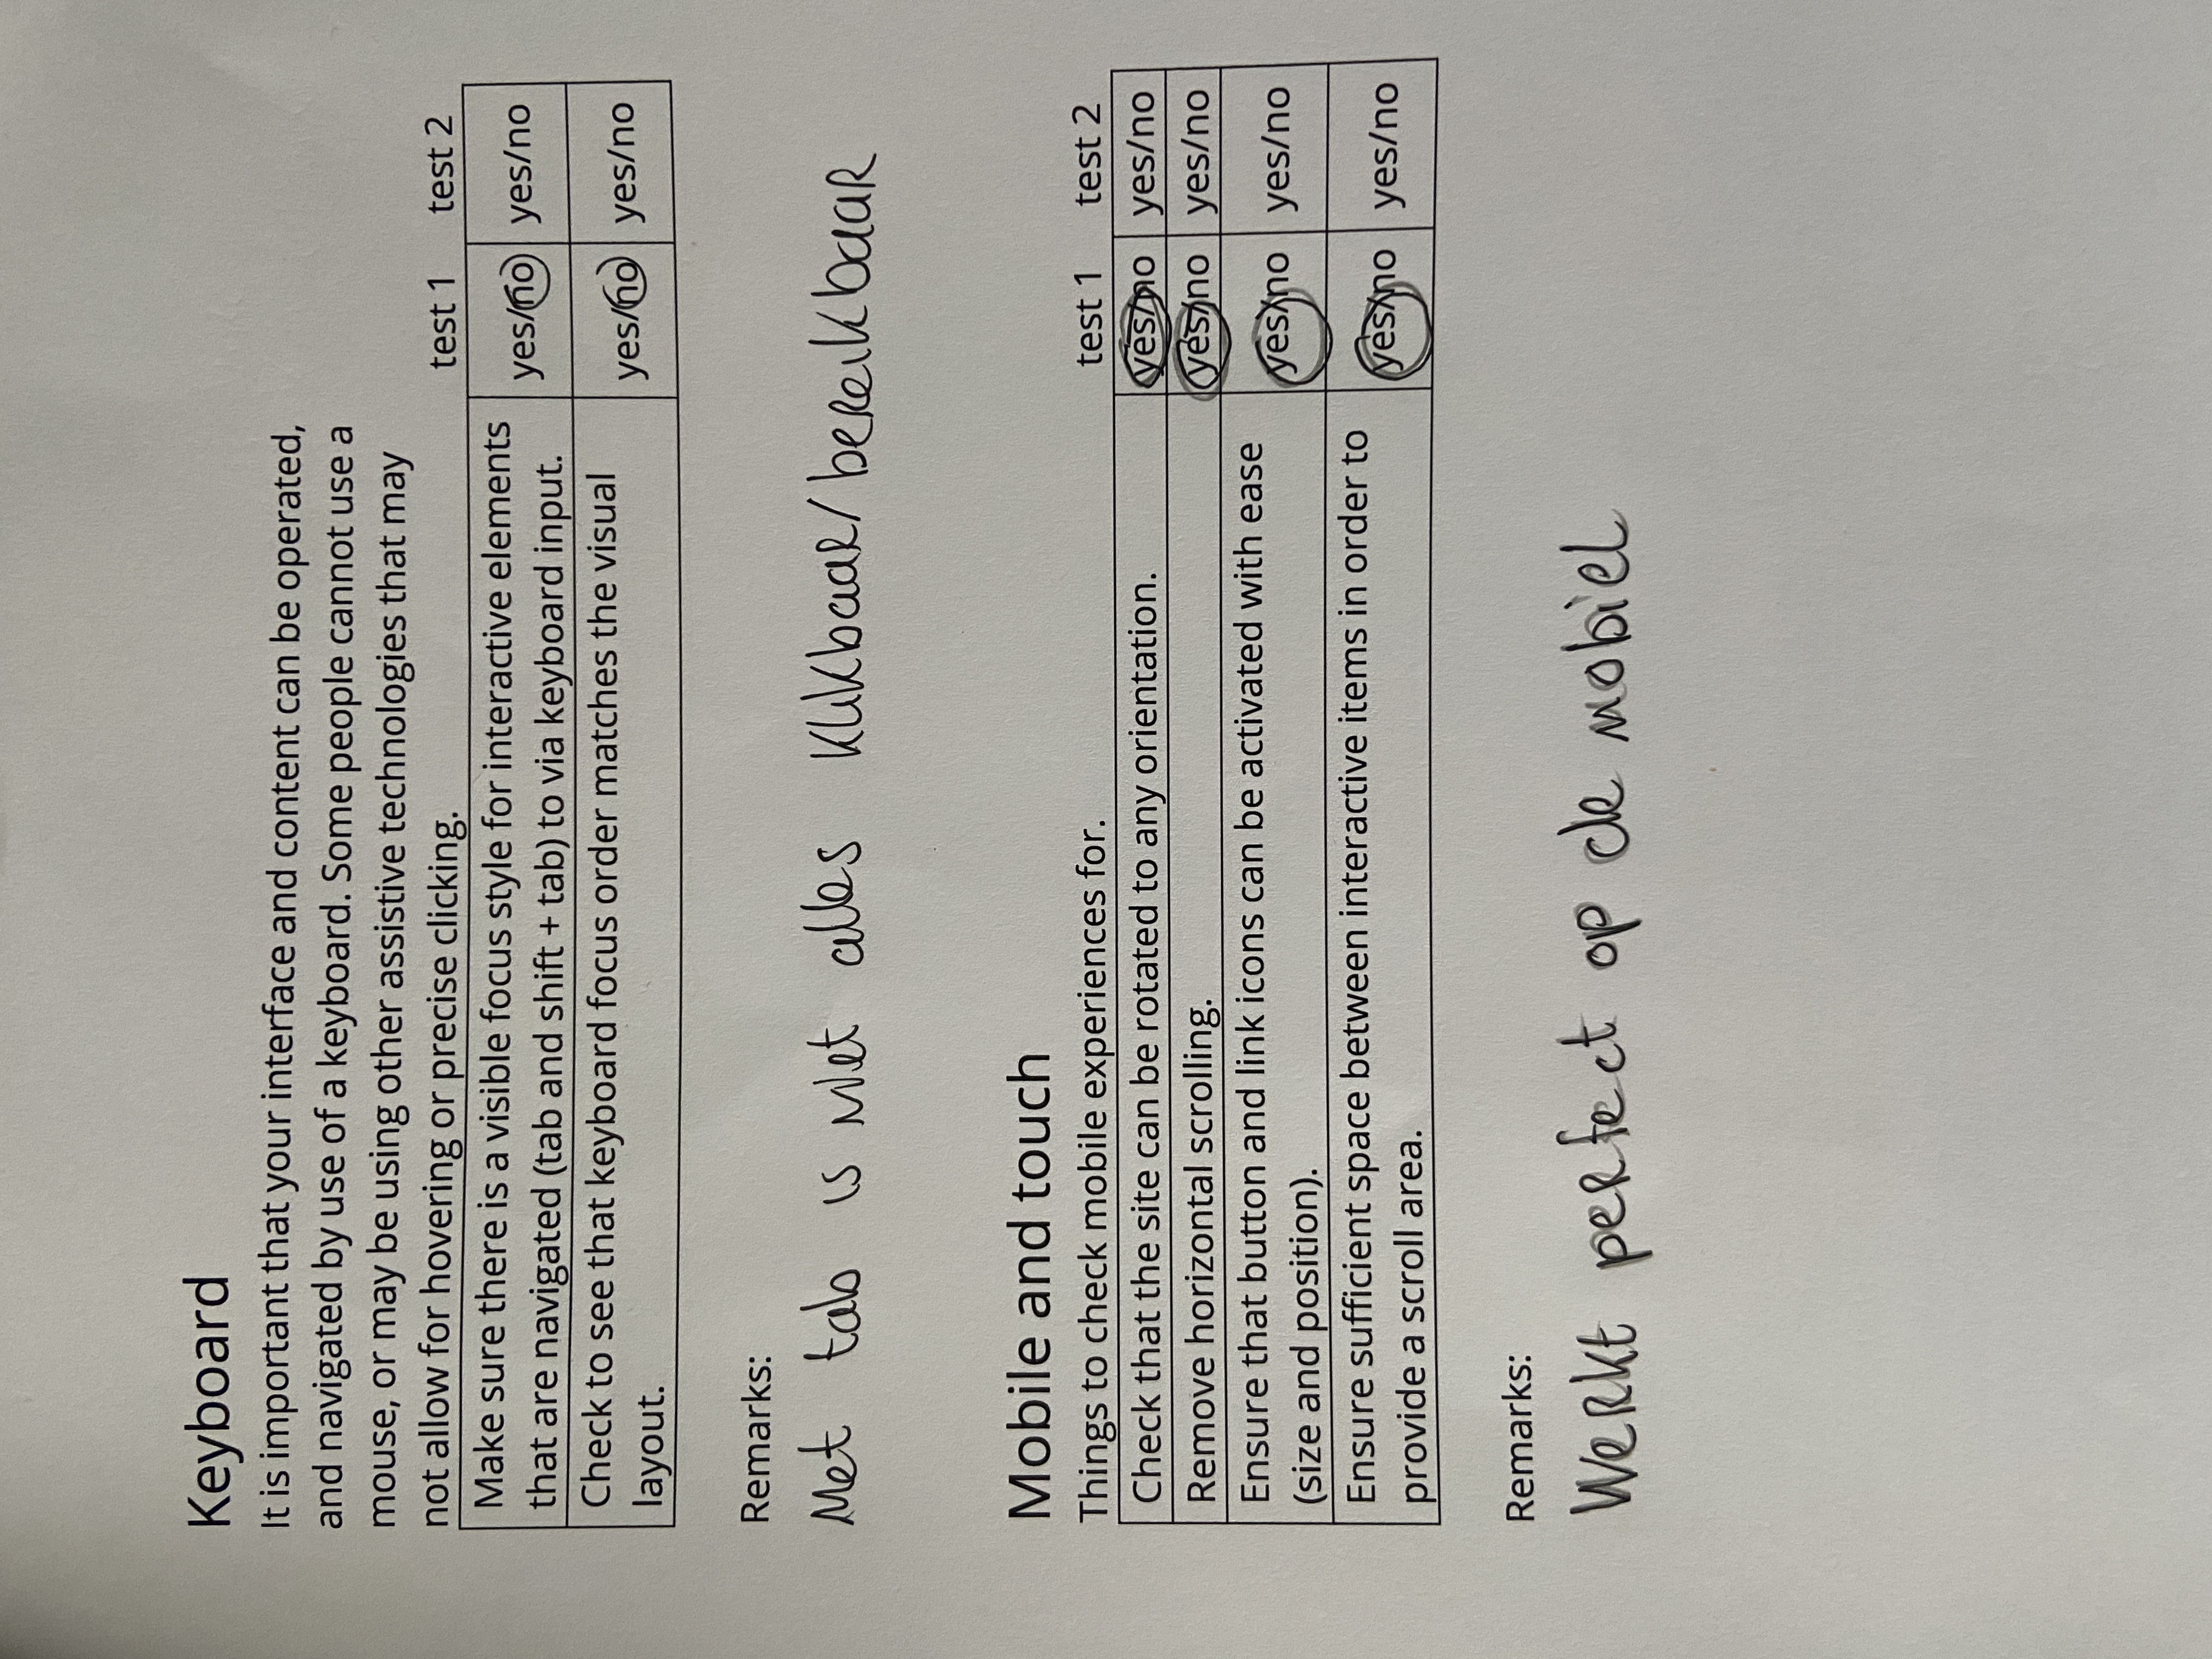 Keyboard
It is important that your interface and content can be operated,
and navigated by use of a keyboard. Some people cannot use a
mouse, or may be using other assistive technologies that may
not allow for hovering or precise clicking.
test 1 test 2
Make sure there is a visible focus style for interactive elements
that are navigated (tab and shift + tab) to via keyboard input.
yes/no yes/no
Check to see that keyboard focus order matches the visual
layout.
yes/no yes/no
Remarks:
Met tab is niet alles klikbaar/bereikbaar
Mobile and touch
Things to check mobile experiences for.
test 1 test 2
Check that the site can be rotated to any orientation. yes/no yes/no
Remove horizontal scrolling. yes/no yes/no
Ensure that button and link icons can be activated with ease
(size and position).
yes/no yes/no
Ensure sufficient space between interactive items in order to
provide a scroll area.
yes/no yes/no
Remarks:
Werkt perfect op de mobiel